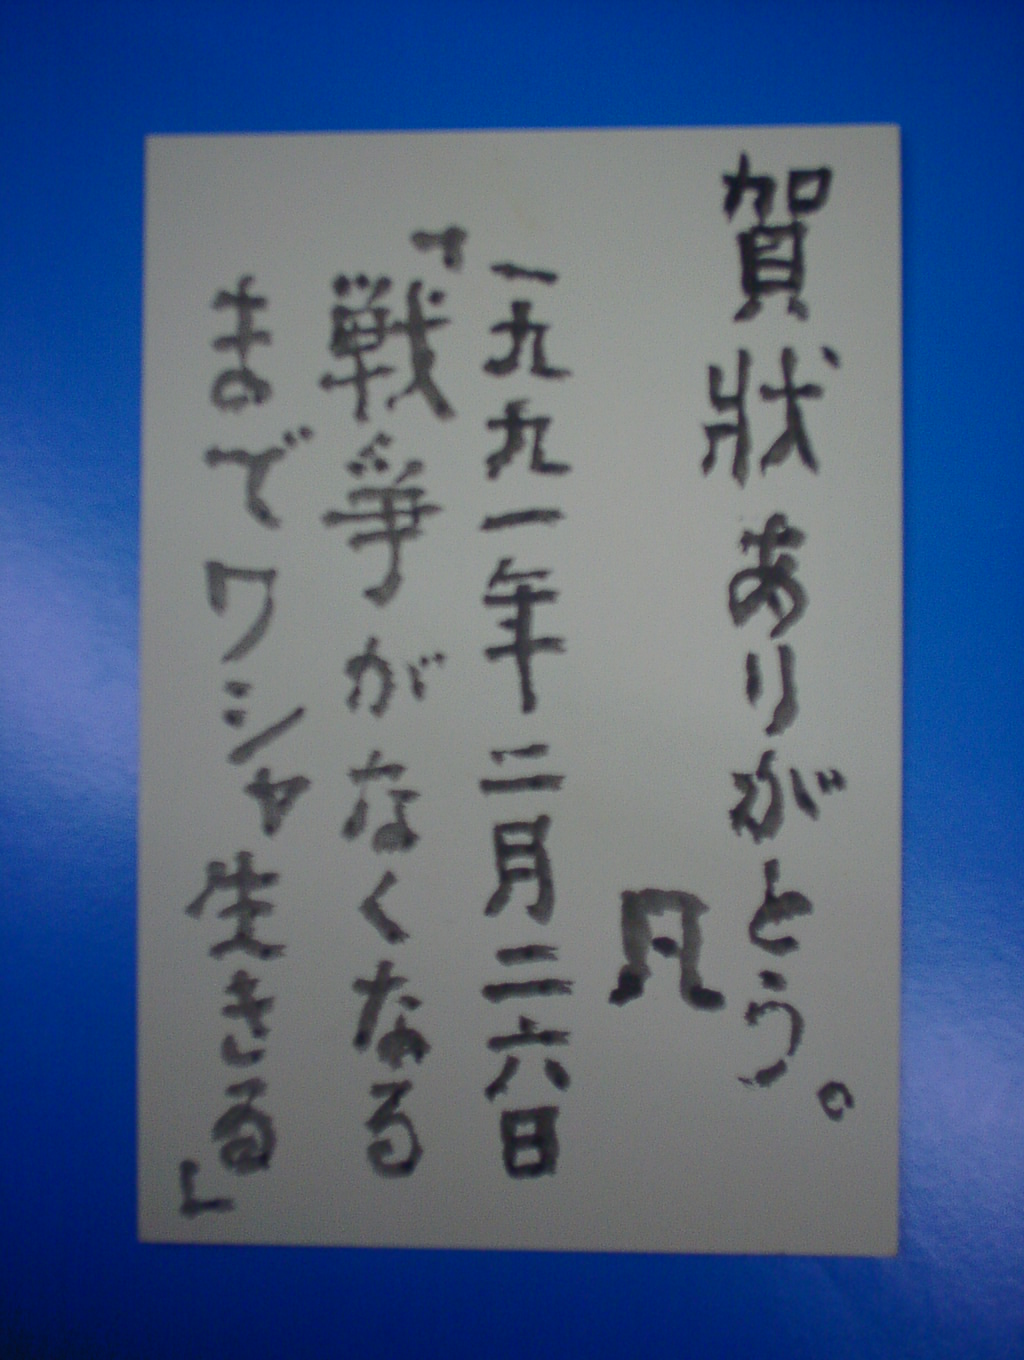 賀状ありがとう。
凡
一九九一年二月二六日
「戦争がなくなる
までワシャ生きる」